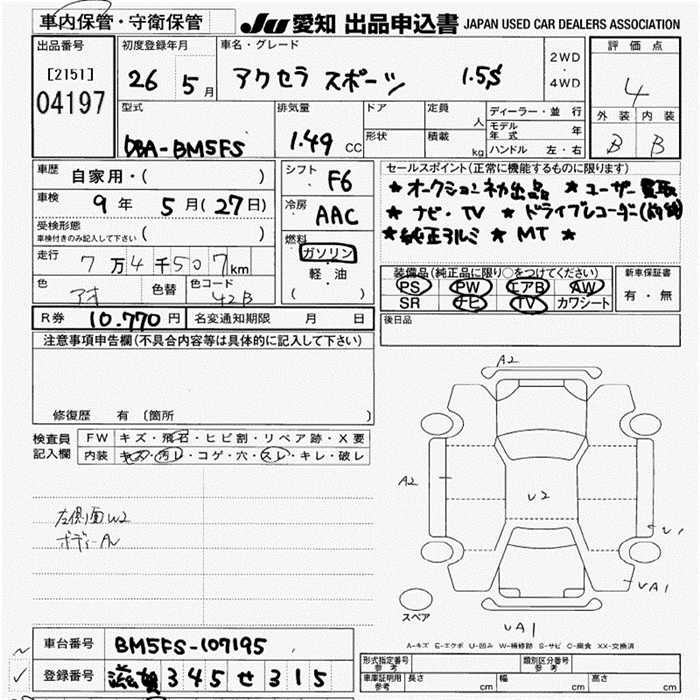 車内保管・守衛保管 JU 愛知 出品申込書 JAPAN USED CAR DEALERS ASSOCIATION
出品番号 初度登録年月 車名・グレード 2WD・4WD 評価点
[2151] 04197 26 5月 アクセラ スポーツ 1.5S 4
型式 排気量 ドア 定員 人 ディーラー・並行 外装 内装
DBA-BM5FS 1.49 CC 形状 積載 kg モデル年式 年 B B
ハンドル 左・右
車歴 自家用・( ) シフト F6 セールスポイント(正常に機能するものに限ります)
車検 9年 5月(27日) 冷房 AAC ★オークション初出品 ★ユーザー買取
受検形態 車検付きのみ記入して下さい ( ) ★ナビ・TV ★ドライブレコーダー(前後)
燃料 ガソリン・軽油 ( ) ★純正アルミ ★MT ★
走行 7万4千507km
装備品(純正品に限り○をつけてください) 新車保証書
PS PW エアB AW 有・無
SR ナビ TV カワシート
色 アオ 色替 色コード 42B
R券 10.770円 名変通知期限 月 日 後日品
注意事項申告欄(不具合内容等は具体的に記入して下さい)
修復歴 有 〔箇所
検査員記入欄 FW キズ・飛石・ヒビ割・リペア跡・X要
内装 キズ・汚レ・コゲ・穴・スレ・キレ・破レ
A2
A2
U2
左側面W2
ボディーAU
UA1
スペア
UA1
A-キズ E-エクボ U-凹み W-補修跡 S-サビ C-腐食 XX-交換済
車台番号 BM5FS-107195
登録番号 滋賀 345 せ 315
形式指定番号 参考 類別区分番号 参考
車庫証明用 参考 長さ cm 幅 cm 高さ cm